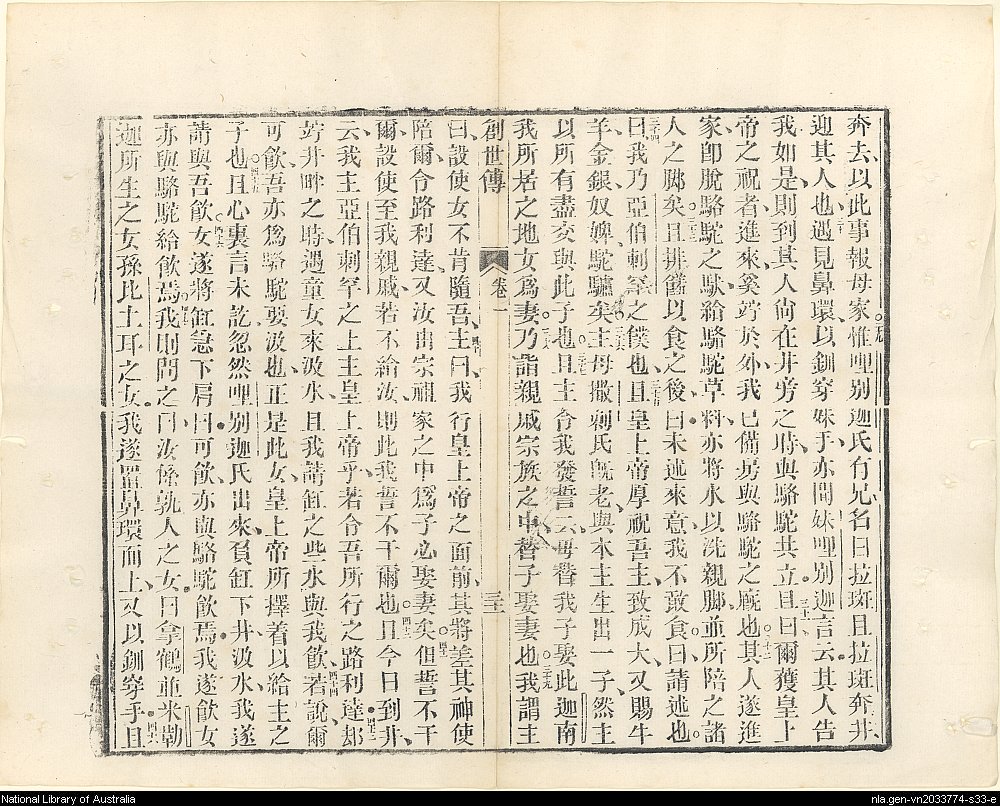 奔去、以此事報母家惟○二十九哩别迦氏冇兄、名曰拉斑且拉斑奔井、
迎其人也○三十遇見鼻環以釧穿妹于亦聞妹哩别迦言云其人告
我如是、則到其人尙在井旁之時、與駱駝共立○三十一且曰爾獲皇上
帝之祝者、進來、奚竚於外、我已備房與駱駝之厰也○三十二其人遂進
家卽脫駱駝之馱給駱駝草料、亦將水以洗親脚並所陪之諸
人之脚矣○三十三且排饌以食之後曰未述來意我不敢食曰請述也○
三十四曰我乃亞伯剌罕之僕也○三十五且皇上帝厚祝吾主致成大又賜牛
羊金銀奴婢駝驢矣○三十六主母撒剌氏旣老與本主生出一子然主
以所有盡交與此子也○三十七且主令我發誓云毋替我子娶此迦南
我所居之地女爲妻○三十八乃詣親戚宗族之中替子娶妻也○三十九我謂主
創世傳 卷一 三十
曰設使女不肯隨吾○四十主曰我行皇上帝之面前其將差其神使
陪爾令路利達又汝由宗親家之中爲子必娶妻矣○四十一但誓不干
爾設使至我親戚若不給汝則此我誓不干爾也○四十二且今日到井
云我主亞伯剌罕之上主皇上帝乎若令吾所行之路利達○四十三却
竚井畔之時遇童女來汲水且我請缸之些水與我飮○四十四若說爾
可飮吾亦爲駱駝要汲也正是此女皇上帝所擇着以給主之
子也○四十五且心裏言未訖忽然哩别迦氏出來負缸下井汲水我遂
請與吾飮○四十六女遂將缸急下肩曰可飮亦與駱駝飮焉我遂飮女
亦與駱駝給飮焉○四十七我則問之曰汝係孰人之女曰拿鶴並米勒
迦所生之女孫比土耳之女我遂置鼻環面上又以釧穿手○四十八且